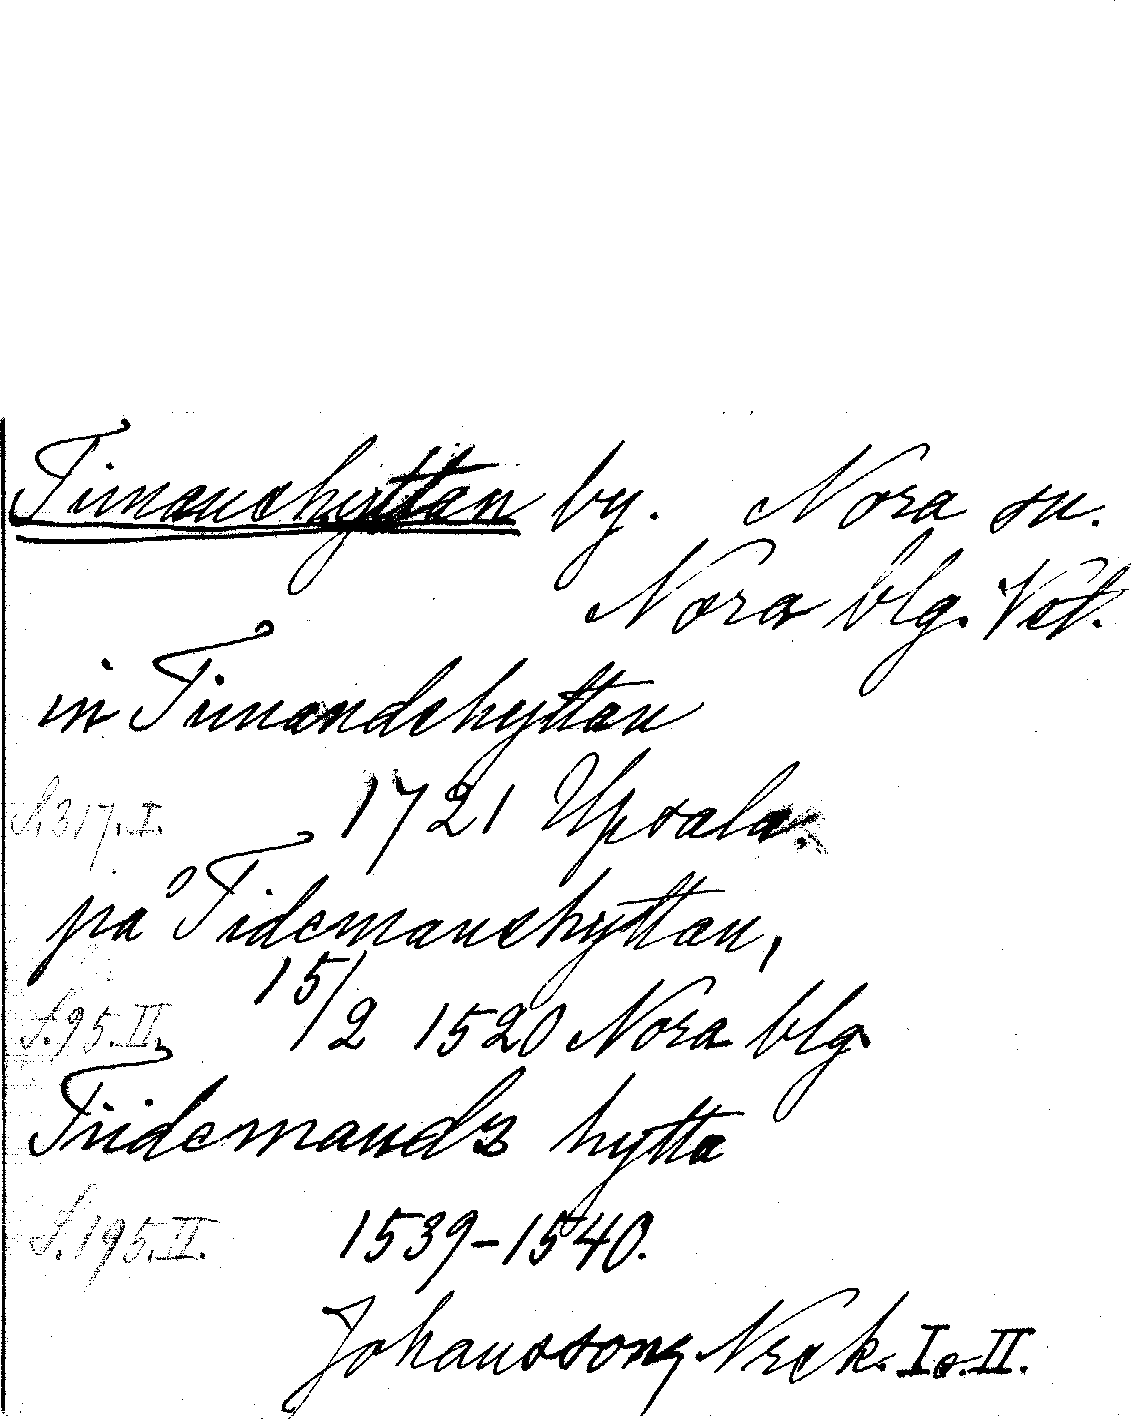 Timanshyttan by. Nora sn.
Nora blg. Vstl.
in Timandshyttan
S. 317. I. 1721 Upsala.
på Tidemanshyttan,
S. 95. II. 15/2 1520 Nora blg
Tiidemandz hytta
S. 195. II. 1539-1540.
Johanssons Nrck. I o. II.